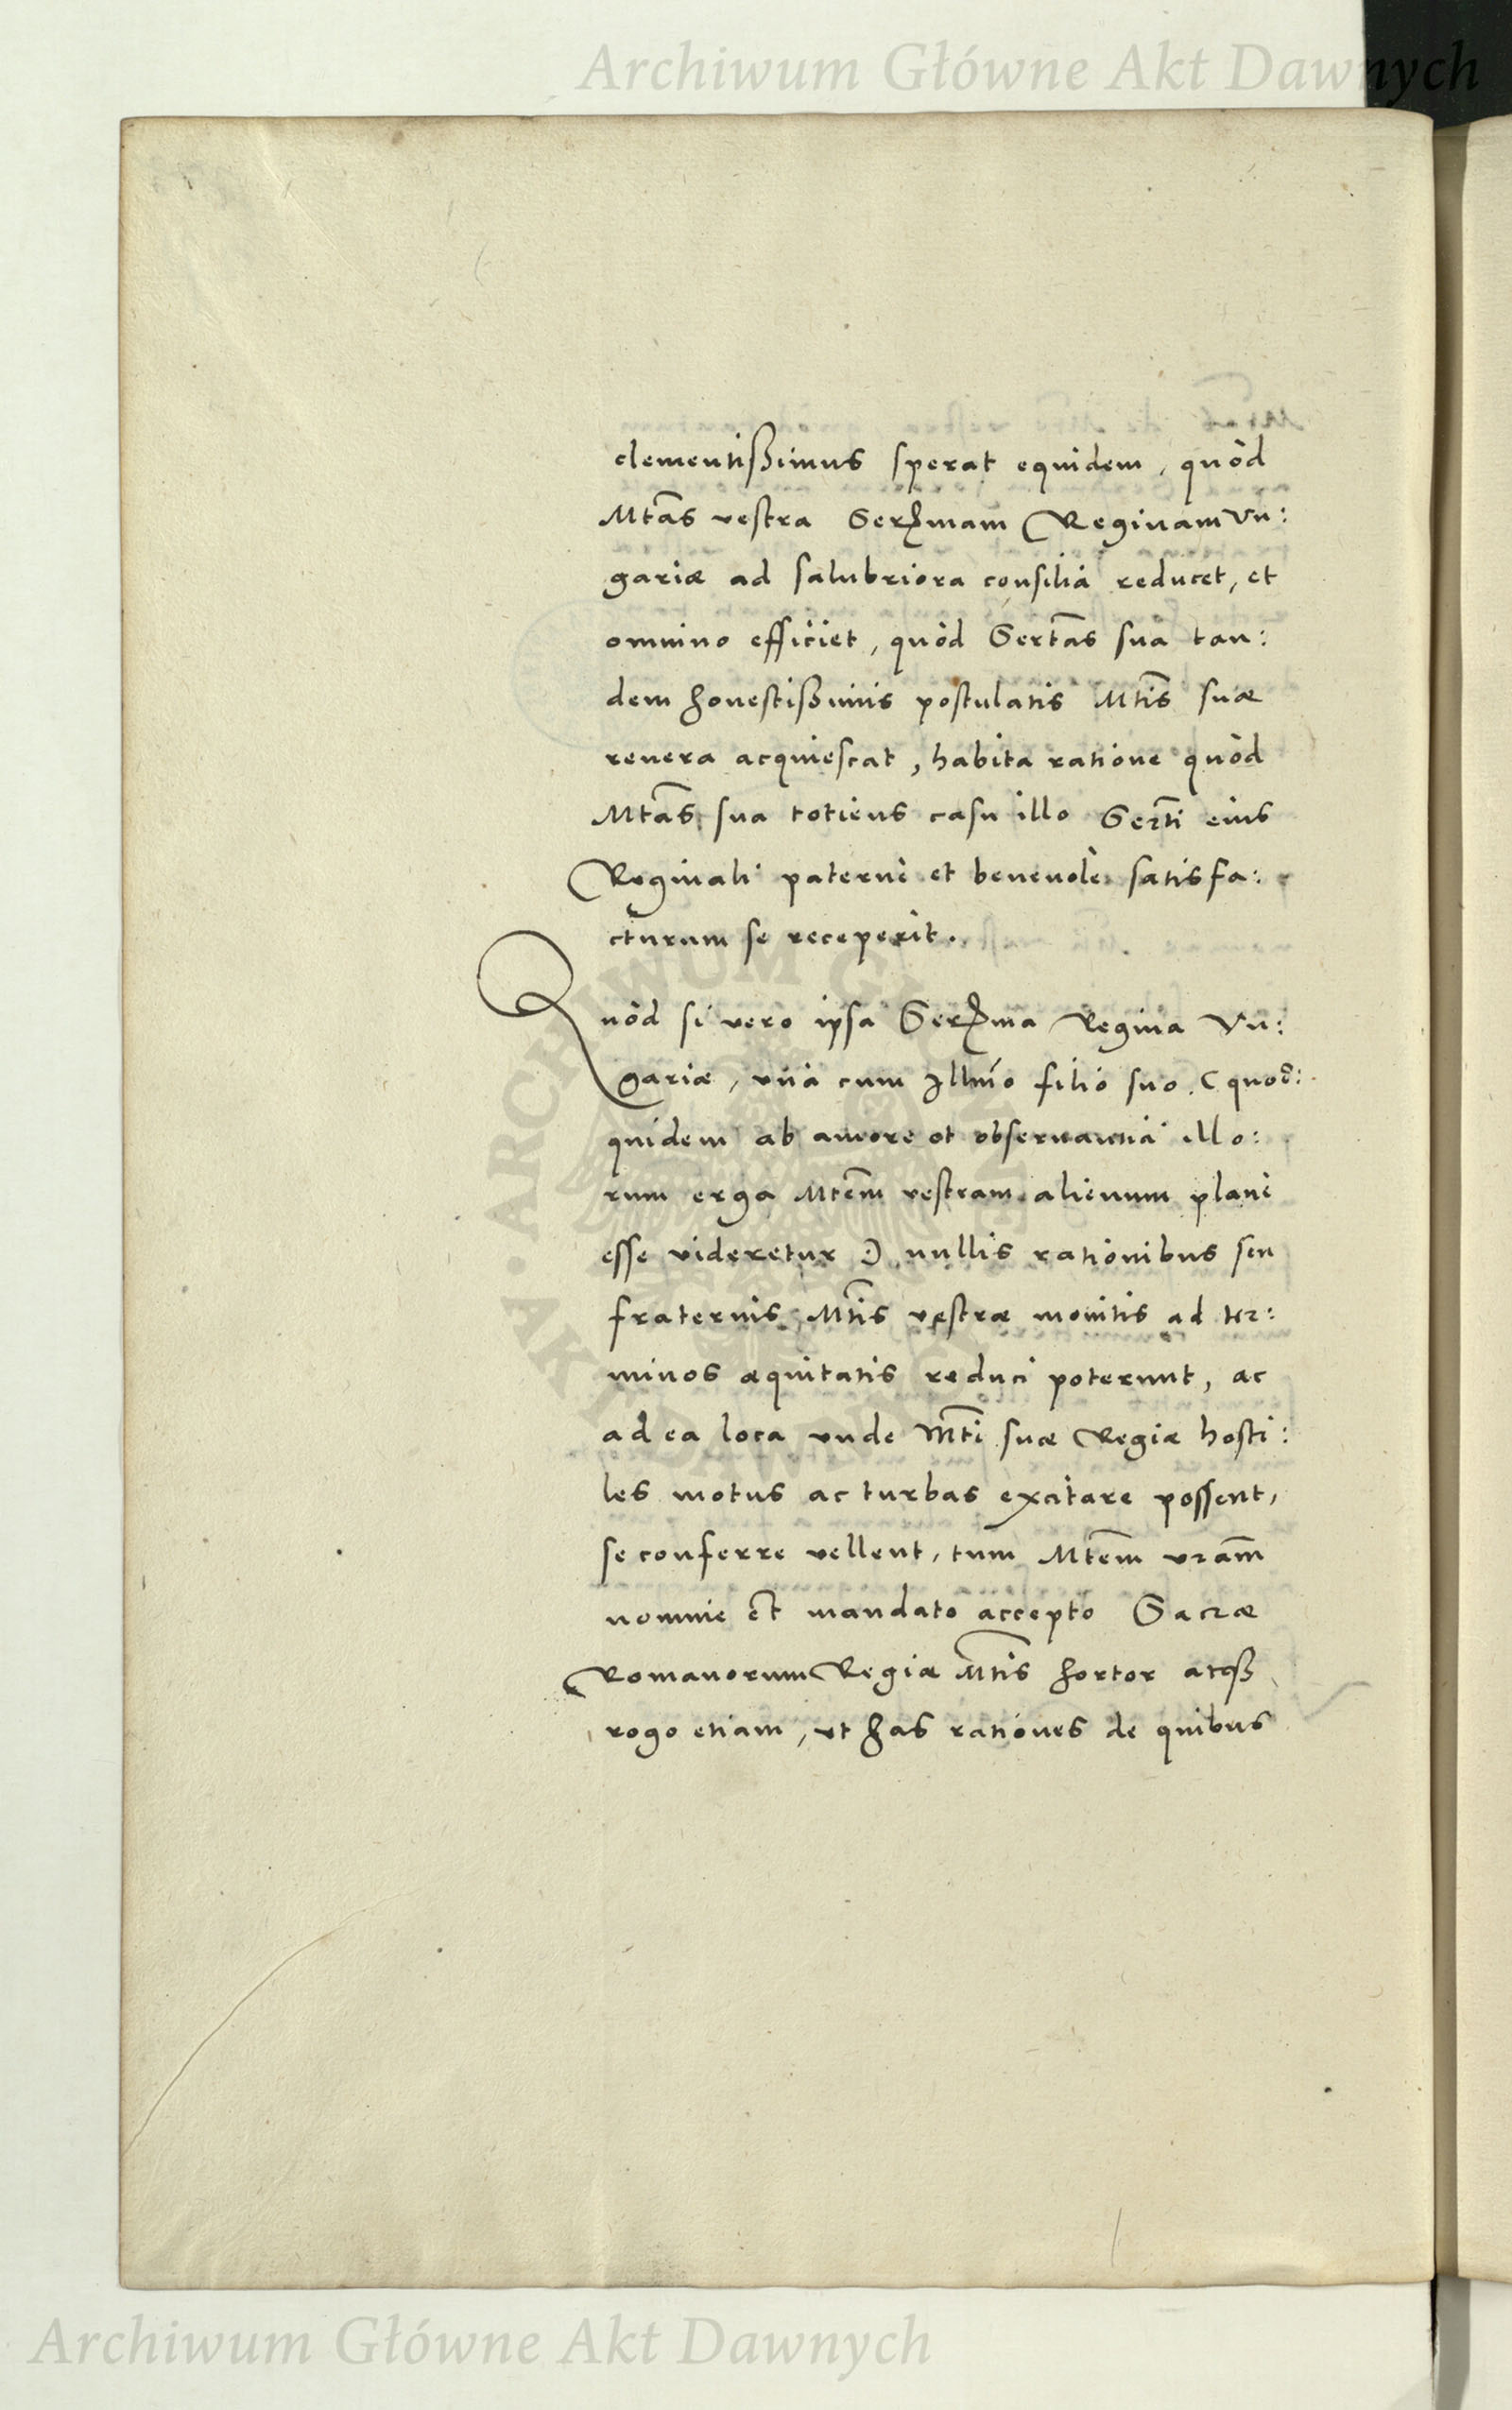 Archiwum Główne Akt Dawnych
clementißimus sperat equidem, quòd
Mtãs vestra Serꝫmam Reginam Vn:
gariæ ad salubriora consilia reducet, et
omnino efficiet, quòd Sertãs sua tan:
dem honestißimis postulatis Mtĩs suæ
revera acquiescat, habita ratione quòd
Mtãs sua totiens casu illo Sertĩ eius
Reginali paternè et beneuolè satisfa:
cturum se receperit.
Quòd si vero ipsa Serꝫma Regina Vn:
gariæ, vnà cum Illmõ filio suo (quod:
quidem ab amore et obseruantia illo:
rum erga Mtẽm vestram alienum planè
esse videretur:) nullis rationibus seu
fraternis Mtĩs vestræ monitis ad ter:
minos æquitatis reduci poterunt, ac
ad ea loca vnde Mtĩ suæ Regiæ hosti:
les motus ac turbas excitare possent,
se conferre vellent, tum Mtẽm vrãm
nomine et mandato accepto Sacræ
Romanorum Regiæ Mtĩs hortor atqß
rogo etiam, vt has rationes de quibus
ARCHIWUM GŁÓWNE AKT DAWNYCH
Archiwum Główne Akt Dawnych